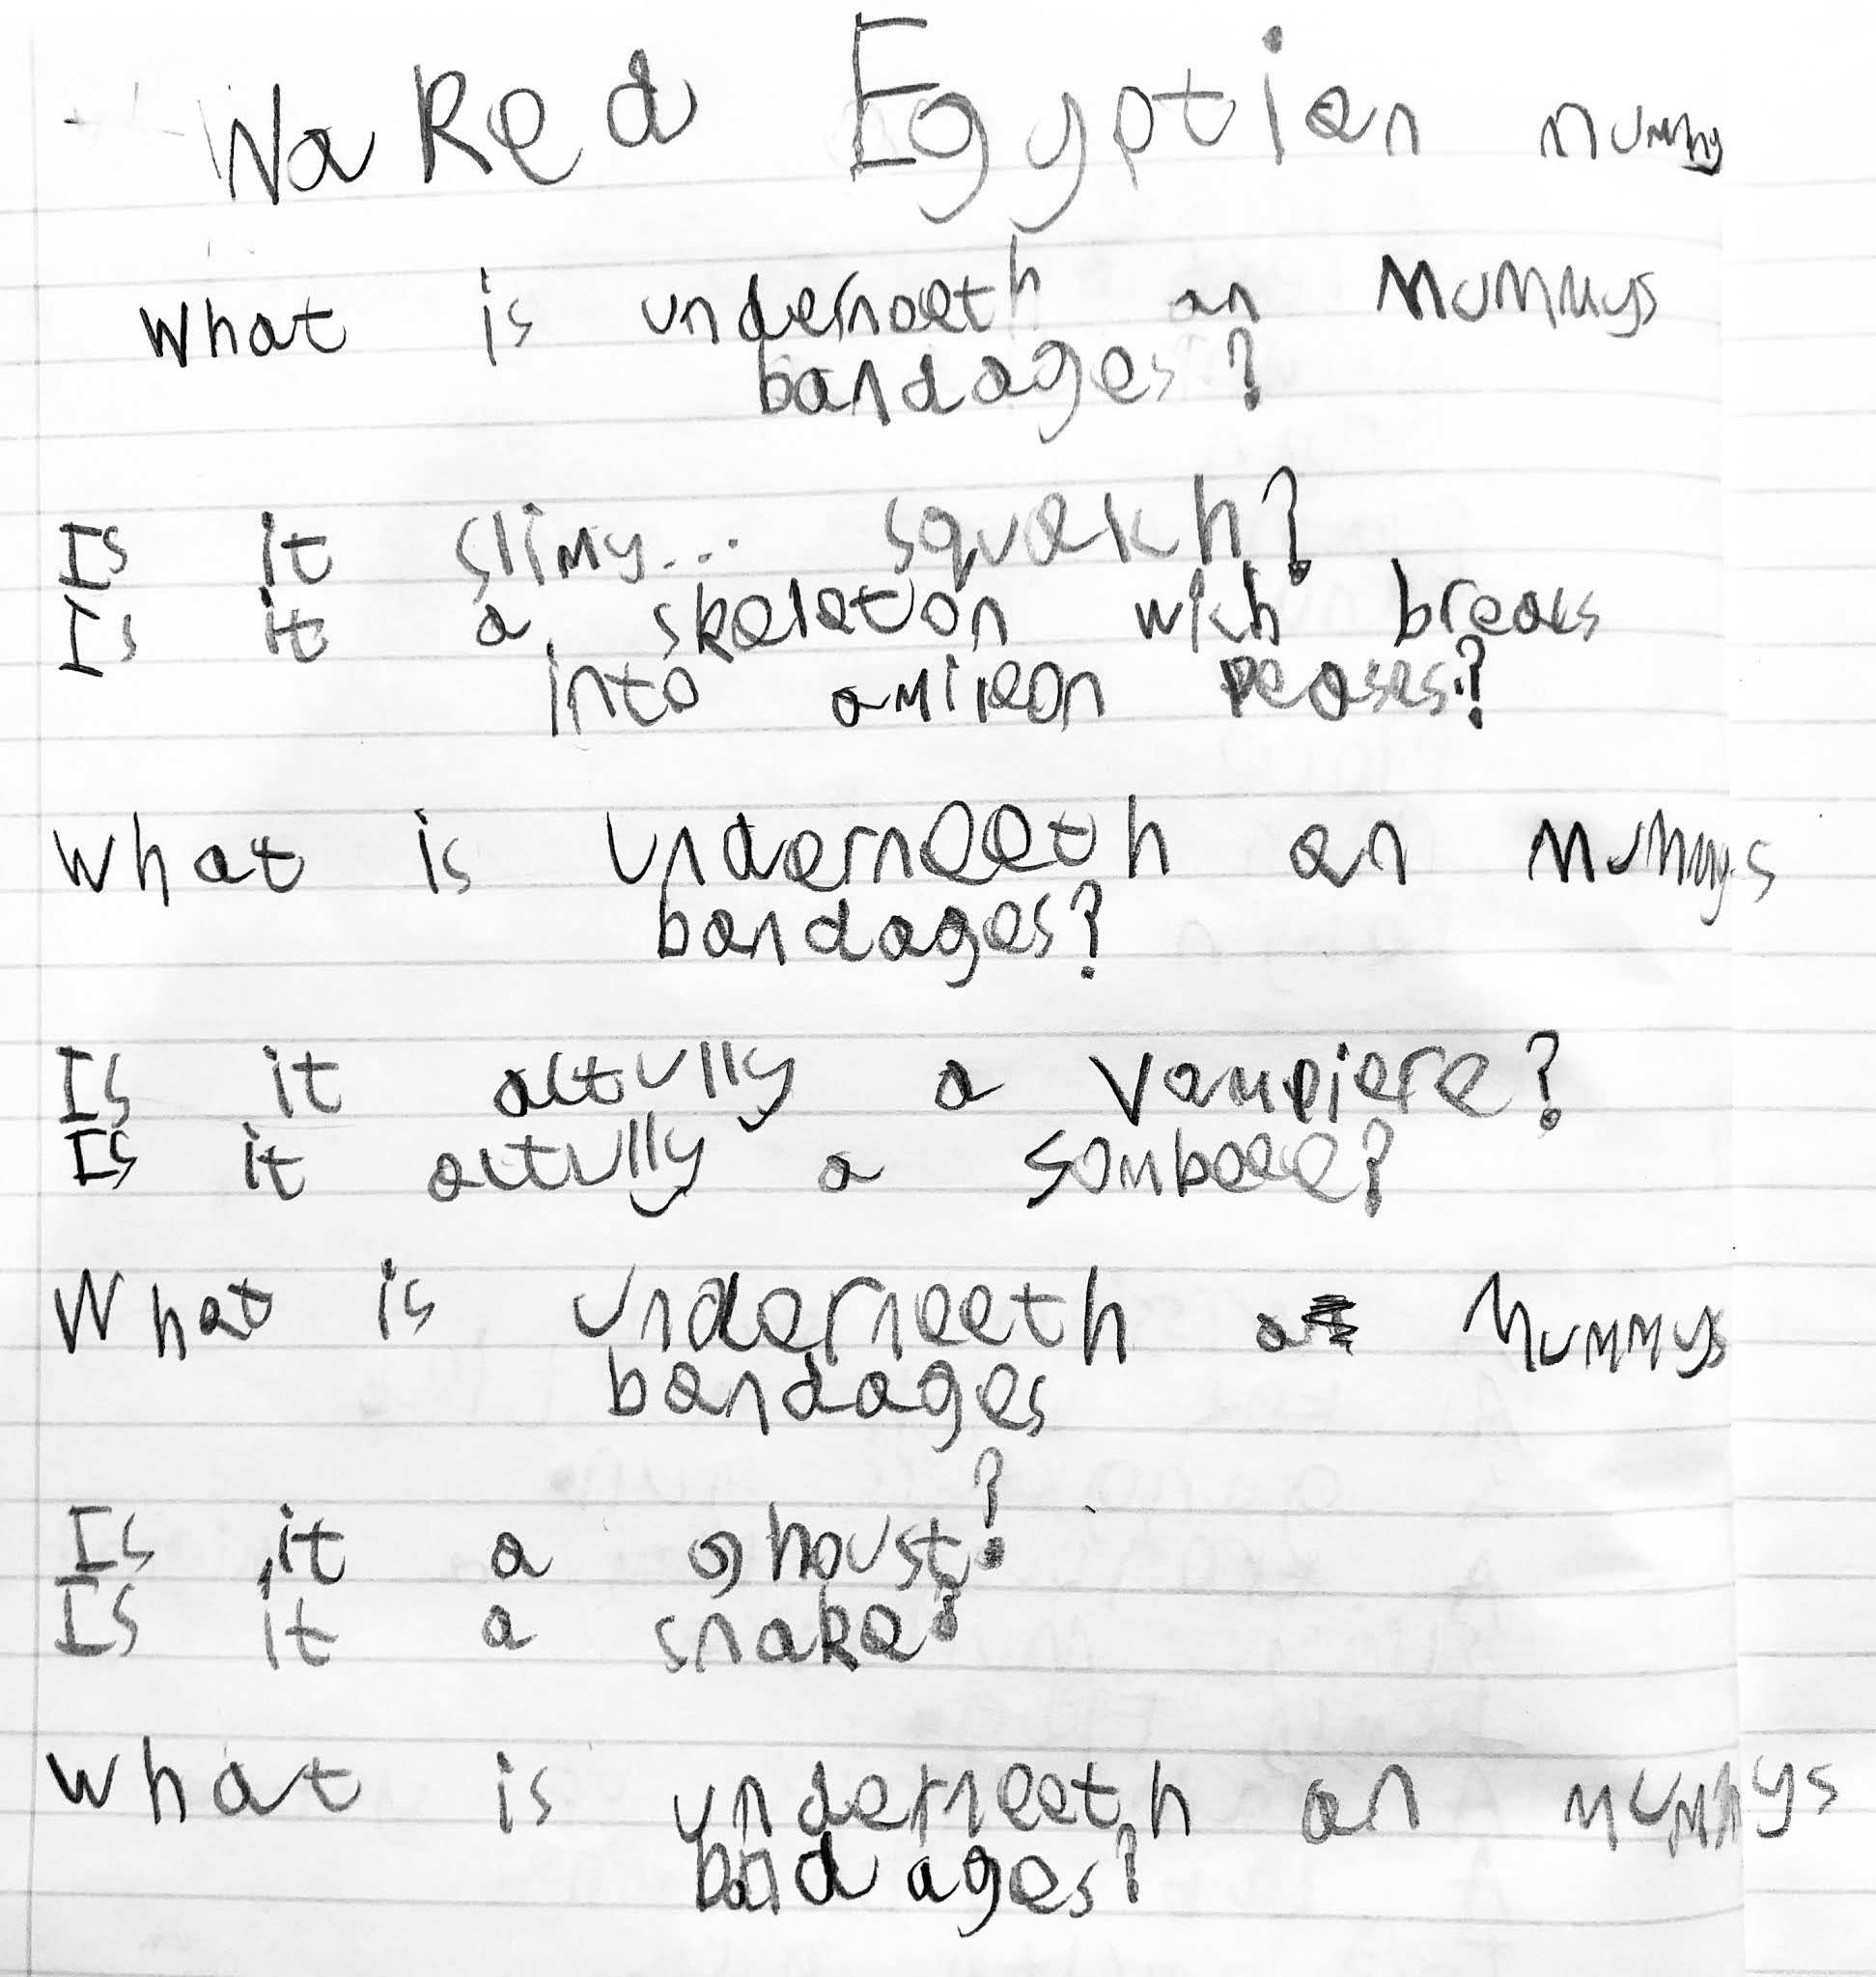 Naked Egyptian mummy
What is underneeth an Mummys
bandages?
Is it slimy... squekh?
Is it a skeleton wich breacs
into amileon peases?
What is underneeth an mummys
bandages?
Is it actully a vampiere?
Is it actully a sombeee?
What is underneeth a Mummys
bandages
Is it a ghoust?
Is it a snake?
What is underneeth an mummys
bandages?